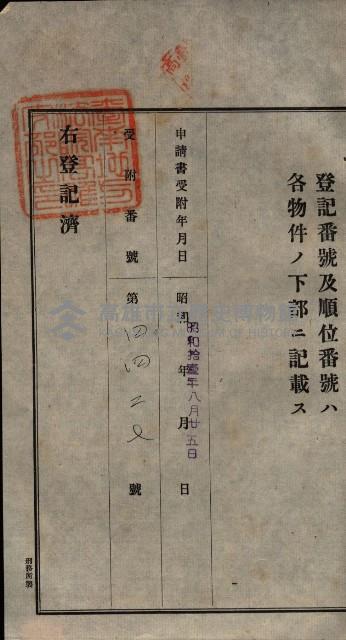 登記番號及順位番號ハ
各物件ノ下部ニ記載ス
申請書受附年月日
昭和 年 月 日
昭和拾壹年八月廿五日
受附番號
第 號
右登記濟
刑務所製
高雄市立歷史博物館
KAOHSIUNG MUSEUM OF HISTORY